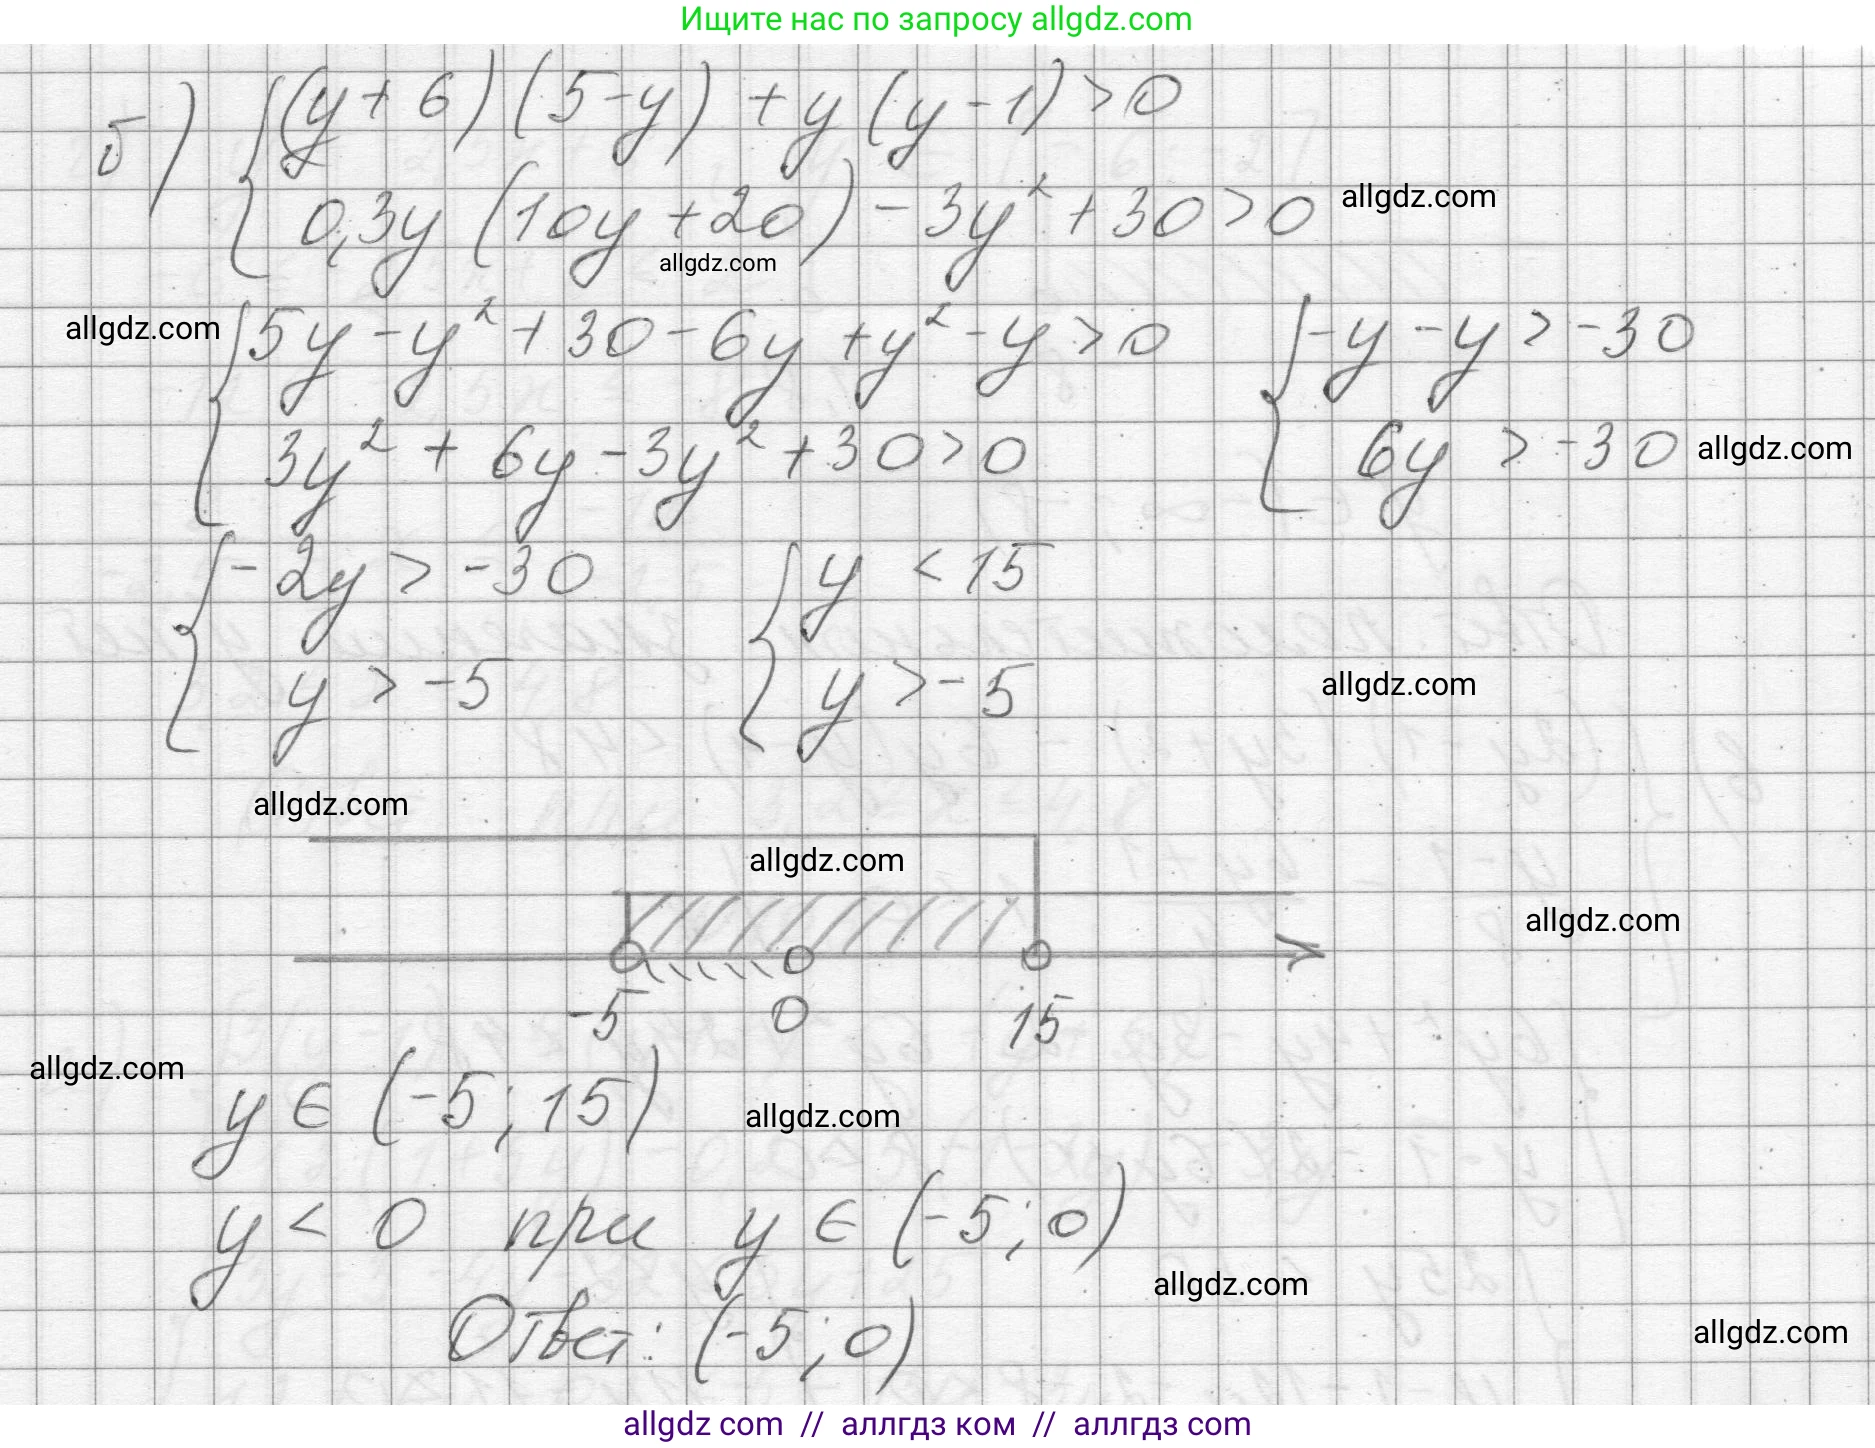 Ищите нас по запросу allgdz.com
б) { (y + 6)(5 - y) + y(y - 1) > 0
0,3y(10y + 20) - 3y² + 30 > 0
allgdz.com
allgdz.com
allgdz.com
{ 5y - y² + 30 - 6y + y² - y > 0 { -y - y > -30
3y² + 6y - 3y² + 30 > 0 6y > -30
allgdz.com
{ -2y > -30 { y < 15
y > -5 y > -5
allgdz.com
allgdz.com
allgdz.com
allgdz.com
-5 0 15
allgdz.com
y ∈ (-5; 15)
allgdz.com
y < 0 при y ∈ (-5; 0)
allgdz.com
Ответ: (-5; 0)
allgdz.com
allgdz com // аллгдз ком // аллгдз com